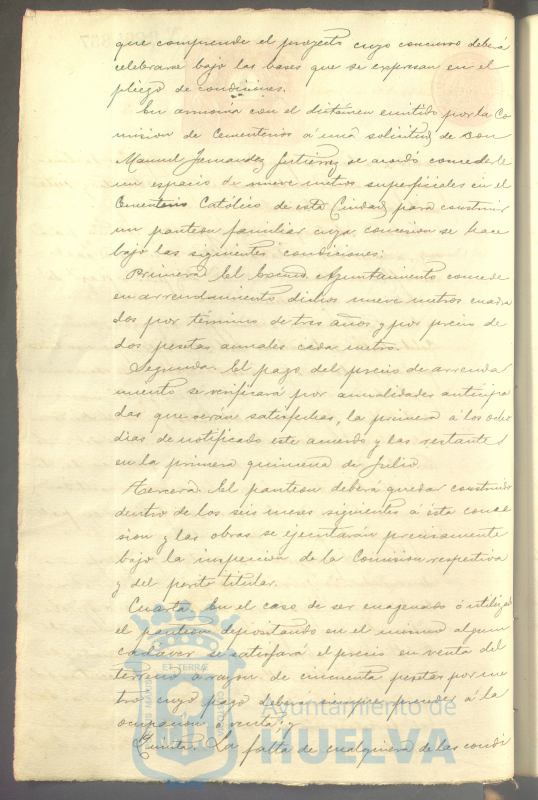 que comprende el proyecto cuyo concurso deberá
celebrarse bajo las bases que se expresan en el
pliego de condiciones.
En armonia con el dictámen emitido por la Co-
mision de Cementerios á una solicitud de Don
Manuel Fernandez Gutiérrez se acordó concederle
un espacio de nueve metros superficiales en el
Cementerio Católico de esta Ciudad para construir
un panteon familiar cuya concesion se hace
bajo las siguientes condiciones:
Primera. El Excmo. Ayuntamiento concede
en arrendamiento dichos nueve metros cuadra
dos por término de tres años y por precio de
dos pesetas anuales cada metro.
Segunda. El pago del precio de arrenda
miento se verificará por anualidades anticipa
das que serán satisfechas, la primera á los ocho
dias de notificado este acuerdo y las restantes
en la primera quincena de Julio.
Tercera. El panteon deberá quedar construido
dentro de los seis meses siguientes á esta conce
sion y las obras se ejecutarán precisamente
bajo la inspeccion de la Comision respectiva
y del perito titular.
Cuarta. En el caso de ser enagenado ó utilizado
el panteon depositando en el mismo algun
cadaver se satisfará el precio en venta del
terreno á razon de cincuenta pesetas por me
tro cuyo pago deberá siempre preceder á la
ocupacion ó venta; y
Quinta. La falta de cualquiera de las condi
Ayuntamiento de
HUELVA